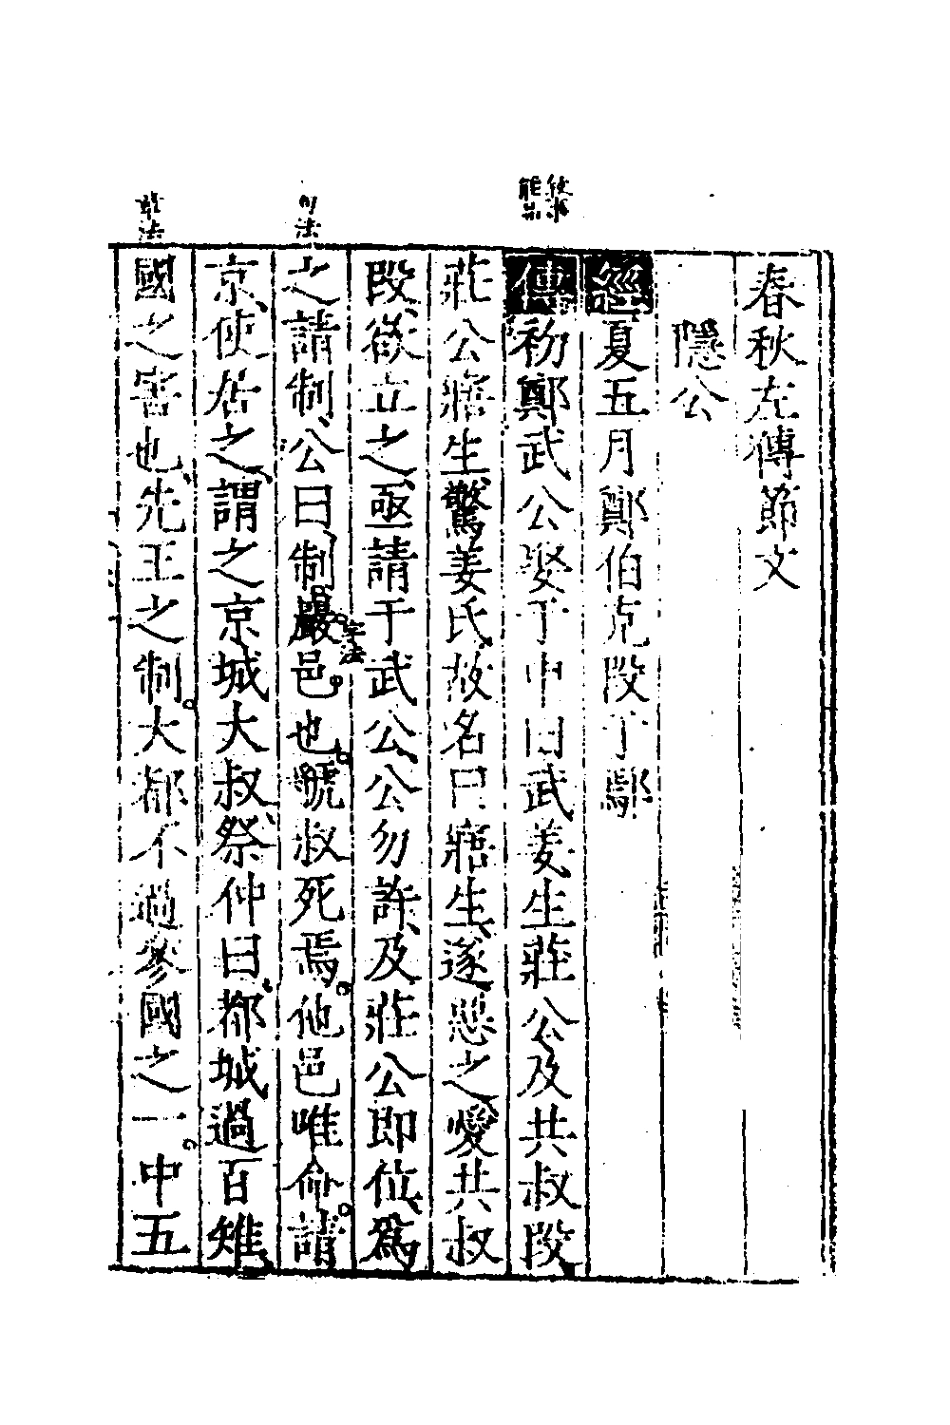 春秋左傳節文
隱公
經夏五月鄭伯克段于鄢
傳初鄭武公娶于申曰武姜生莊公及共叔段
莊公寤生驚姜氏故名曰寤生遂惡之愛共叔
段欲立之亟請于武公公勿許及莊公即位為
之請制公曰制巖邑也虢叔死焉他邑唯命請
字法
句法
京使居之謂之京城大叔祭仲曰都城過百雉
國之害也先王之制大都不過參國之一中五
章法